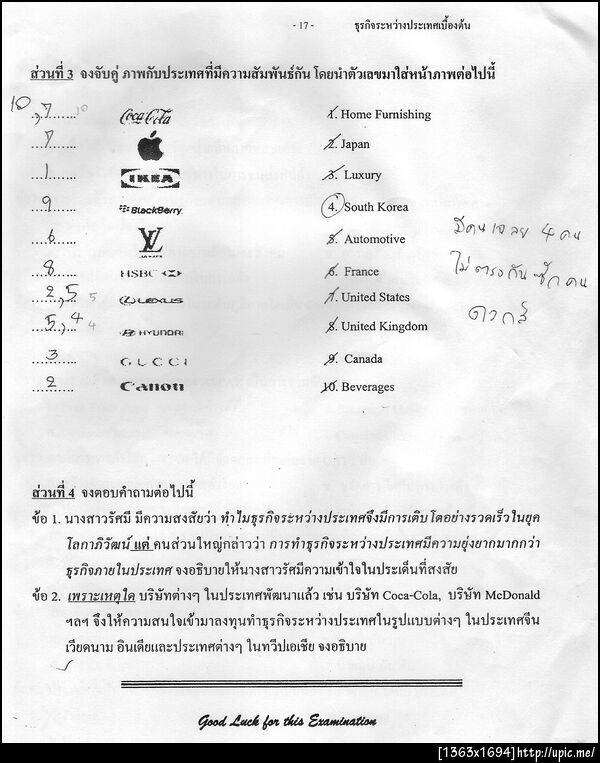 - 17 - ธุรกิจระหว่างประเทศเบื้องต้น
ส่วนที่ 3 จงจับคู่ ภาพกับประเทศที่มีความสัมพันธ์กัน โดยนำตัวเลขมาใส่หน้าภาพต่อไปนี้
10, 7 10 Coca-Cola 1. Home Furnishing
7 2. Japan
1 IKEA 3. Luxury
9 BlackBerry 4. South Korea
6 LV 5. Automotive
8 HSBC 6. France
2, 5 5 LEXUS 7. United States
5, 4 4 HYUNDAI 8. United Kingdom
3 GUCCI 9. Canada
2 Canon 10. Beverages
มีคนเฉลย 4 คน
ไม่ตรงกันซักคน
ส่วนที่ 4 จงตอบคำถามต่อไปนี้
ข้อ 1. นางสาวรัศมี มีความสงสัยว่า ทำไมธุรกิจระหว่างประเทศจึงมีการเติบโตอย่างรวดเร็วในยุค
โลกาภิวัฒน์ แต่ คนส่วนใหญ่กล่าวว่า การทำธุรกิจระหว่างประเทศมีความยุ่งยากมากกว่า
ธุรกิจภายในประเทศ จงอธิบายให้นางสาวรัศมีความเข้าใจในประเด็นที่สงสัย
ข้อ 2. เพราะเหตุใด บริษัทต่างๆ ในประเทศพัฒนาแล้ว เช่น บริษัท Coca-Cola, บริษัท McDonald
ฯลฯ จึงให้ความสนใจเข้ามาลงทุนทำธุรกิจระหว่างประเทศในรูปแบบต่างๆ ในประเทศจีน
เวียดนาม อินเดียและประเทศต่างๆ ในทวีปเอเชีย จงอธิบาย
Good Luck for this Examination
[1363x1694]http://upic.me/